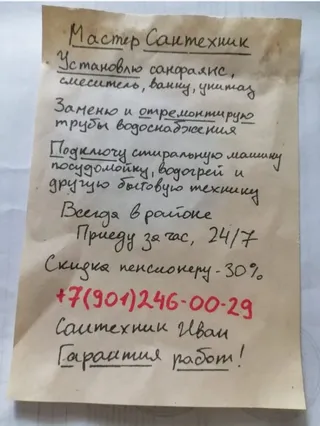 Мастер Сантехник
Установлю санфаянс,
смеситель, ванну, унитаз
Заменю и отремонтирую
трубы водоснабжения
Подключу стиральную машину
посудомойку, водогрей и
другую бытовую технику
Всегда в районе
Приеду за час, 24/7
Скидка пенсионеру - 30%
+7(901)246-00-29
Сантехник Иван
Гарантия работ!